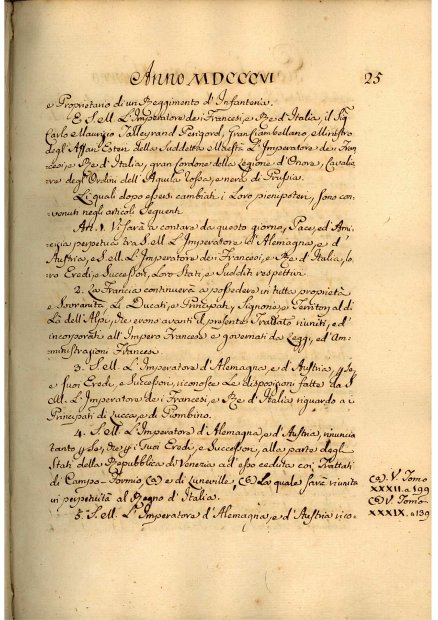 Anno MDCCCVI 25
e Proprietario di un Reggimento d'Infanteria.
E S. M. L'Imperatore de i Francesi, e Re d'Italia, il Sig
Carlo Maurizio Talleyrand Perigord, Gran Ciambellano, e Ministro
degl'Affari Esteri della Suddetta Maestà L'Imperatore de i Fran
cesi, e Re d'Italia, gran Cordone della Legione d'Onore, Cavalie
re degl'Ordini dell'Aquila rossa, e nera di Prussia.
Li quali dopo essersi cambiati i Loro pienipoteri, sono con
venuti negli articoli Seguenti
Art. 1. Vi sarà a contare da questo giorno, Pace, ed Ami
cizia perpetua tra S. M. L'Imperatore d'Alemagna, e d'
Austria, e S. M. L'Imperatore de i Francesi, e Re d'Italia, lo
ro Eredi, e Successori, Loro Stati, e Sudditi respettivi
2. La Francia continuerà a possedere in tutta proprietà
e Sovranità Li Ducati, e Principati, Signorie, e Territorj al di
Là dell'Alpi, che erono avanti il presente Trattato riuniti, ed'
incorporati all'Impero Francese o governati da Leggi, ed Am=
ministrazioni Francesi.
3. S. M. L'Imperatore d'Alemagna, e di Austria, p Se,
e suoi Eredi, e Successori, riconosce Le disposizioni fatte da S.
M. L'Imperatore de i Francesi, e Re d'Italia riguardo a i
Principati di Lucca, e di Piombino.
4. S. M. L'Imperatore d'Alemagna, e d'Austria, rinuncia
tanto p Se, che p i Suoi Eredi, e Successori, alla parte degli
Stati della Repubblica di Venezia ad esso ceduta coi Trattati
di Campo-Formio, (a) e di Luneville, (a) La quale sarà riunita
in perpetuità al Regno d'Italia.
5. S. M. L'Imperatore d'Alemagna, e d'Austria rico-
(a) V. Tomo
XXXII. a 199
(a) V. Tomo
XXXIX. a 139